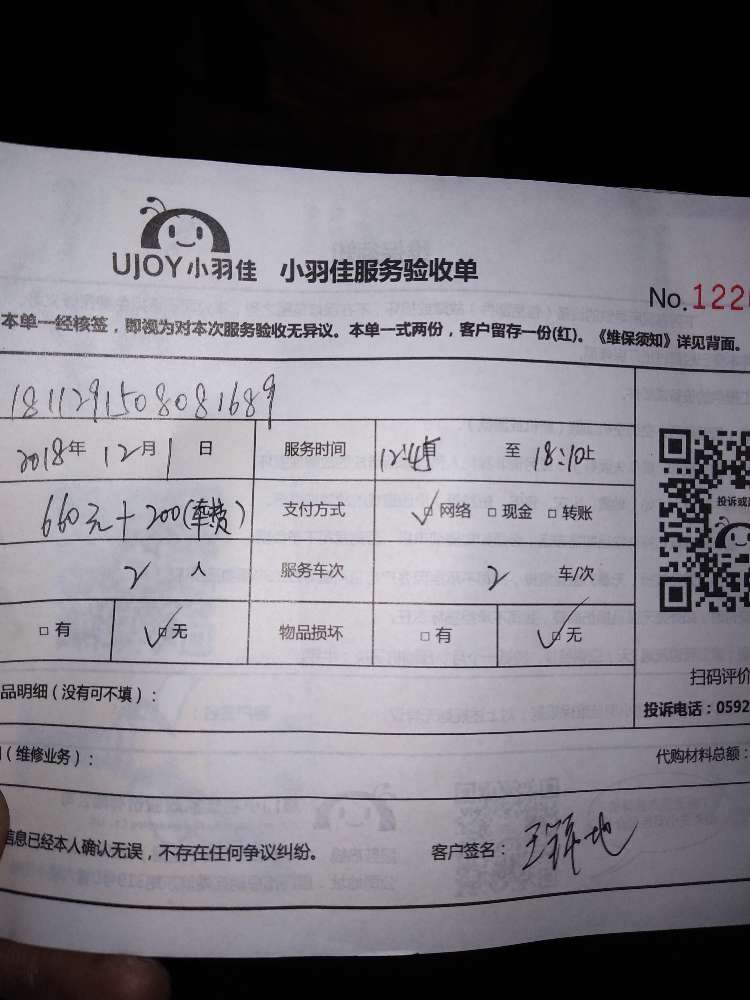 UJOY小羽佳 小羽佳服务验收单
No.122
本单一经核签，即视为对本次服务验收无异议。本单一式两份，客户留存一份(红)。《维保须知》详见背面。
1811291508081689
2018年 12月 1日 服务时间 至 18:10止
660元+200(车费) 支付方式 □网络 □现金 □转账
投诉或
2 人 服务车次 2 车/次
□有 □无 物品损坏 □有 □无
扫码评价
品明细（没有可不填）：
投诉电话：0592
（维修业务）： 代购材料总额：
信息已经本人确认无误，不存在任何争议纠纷。 客户签名：